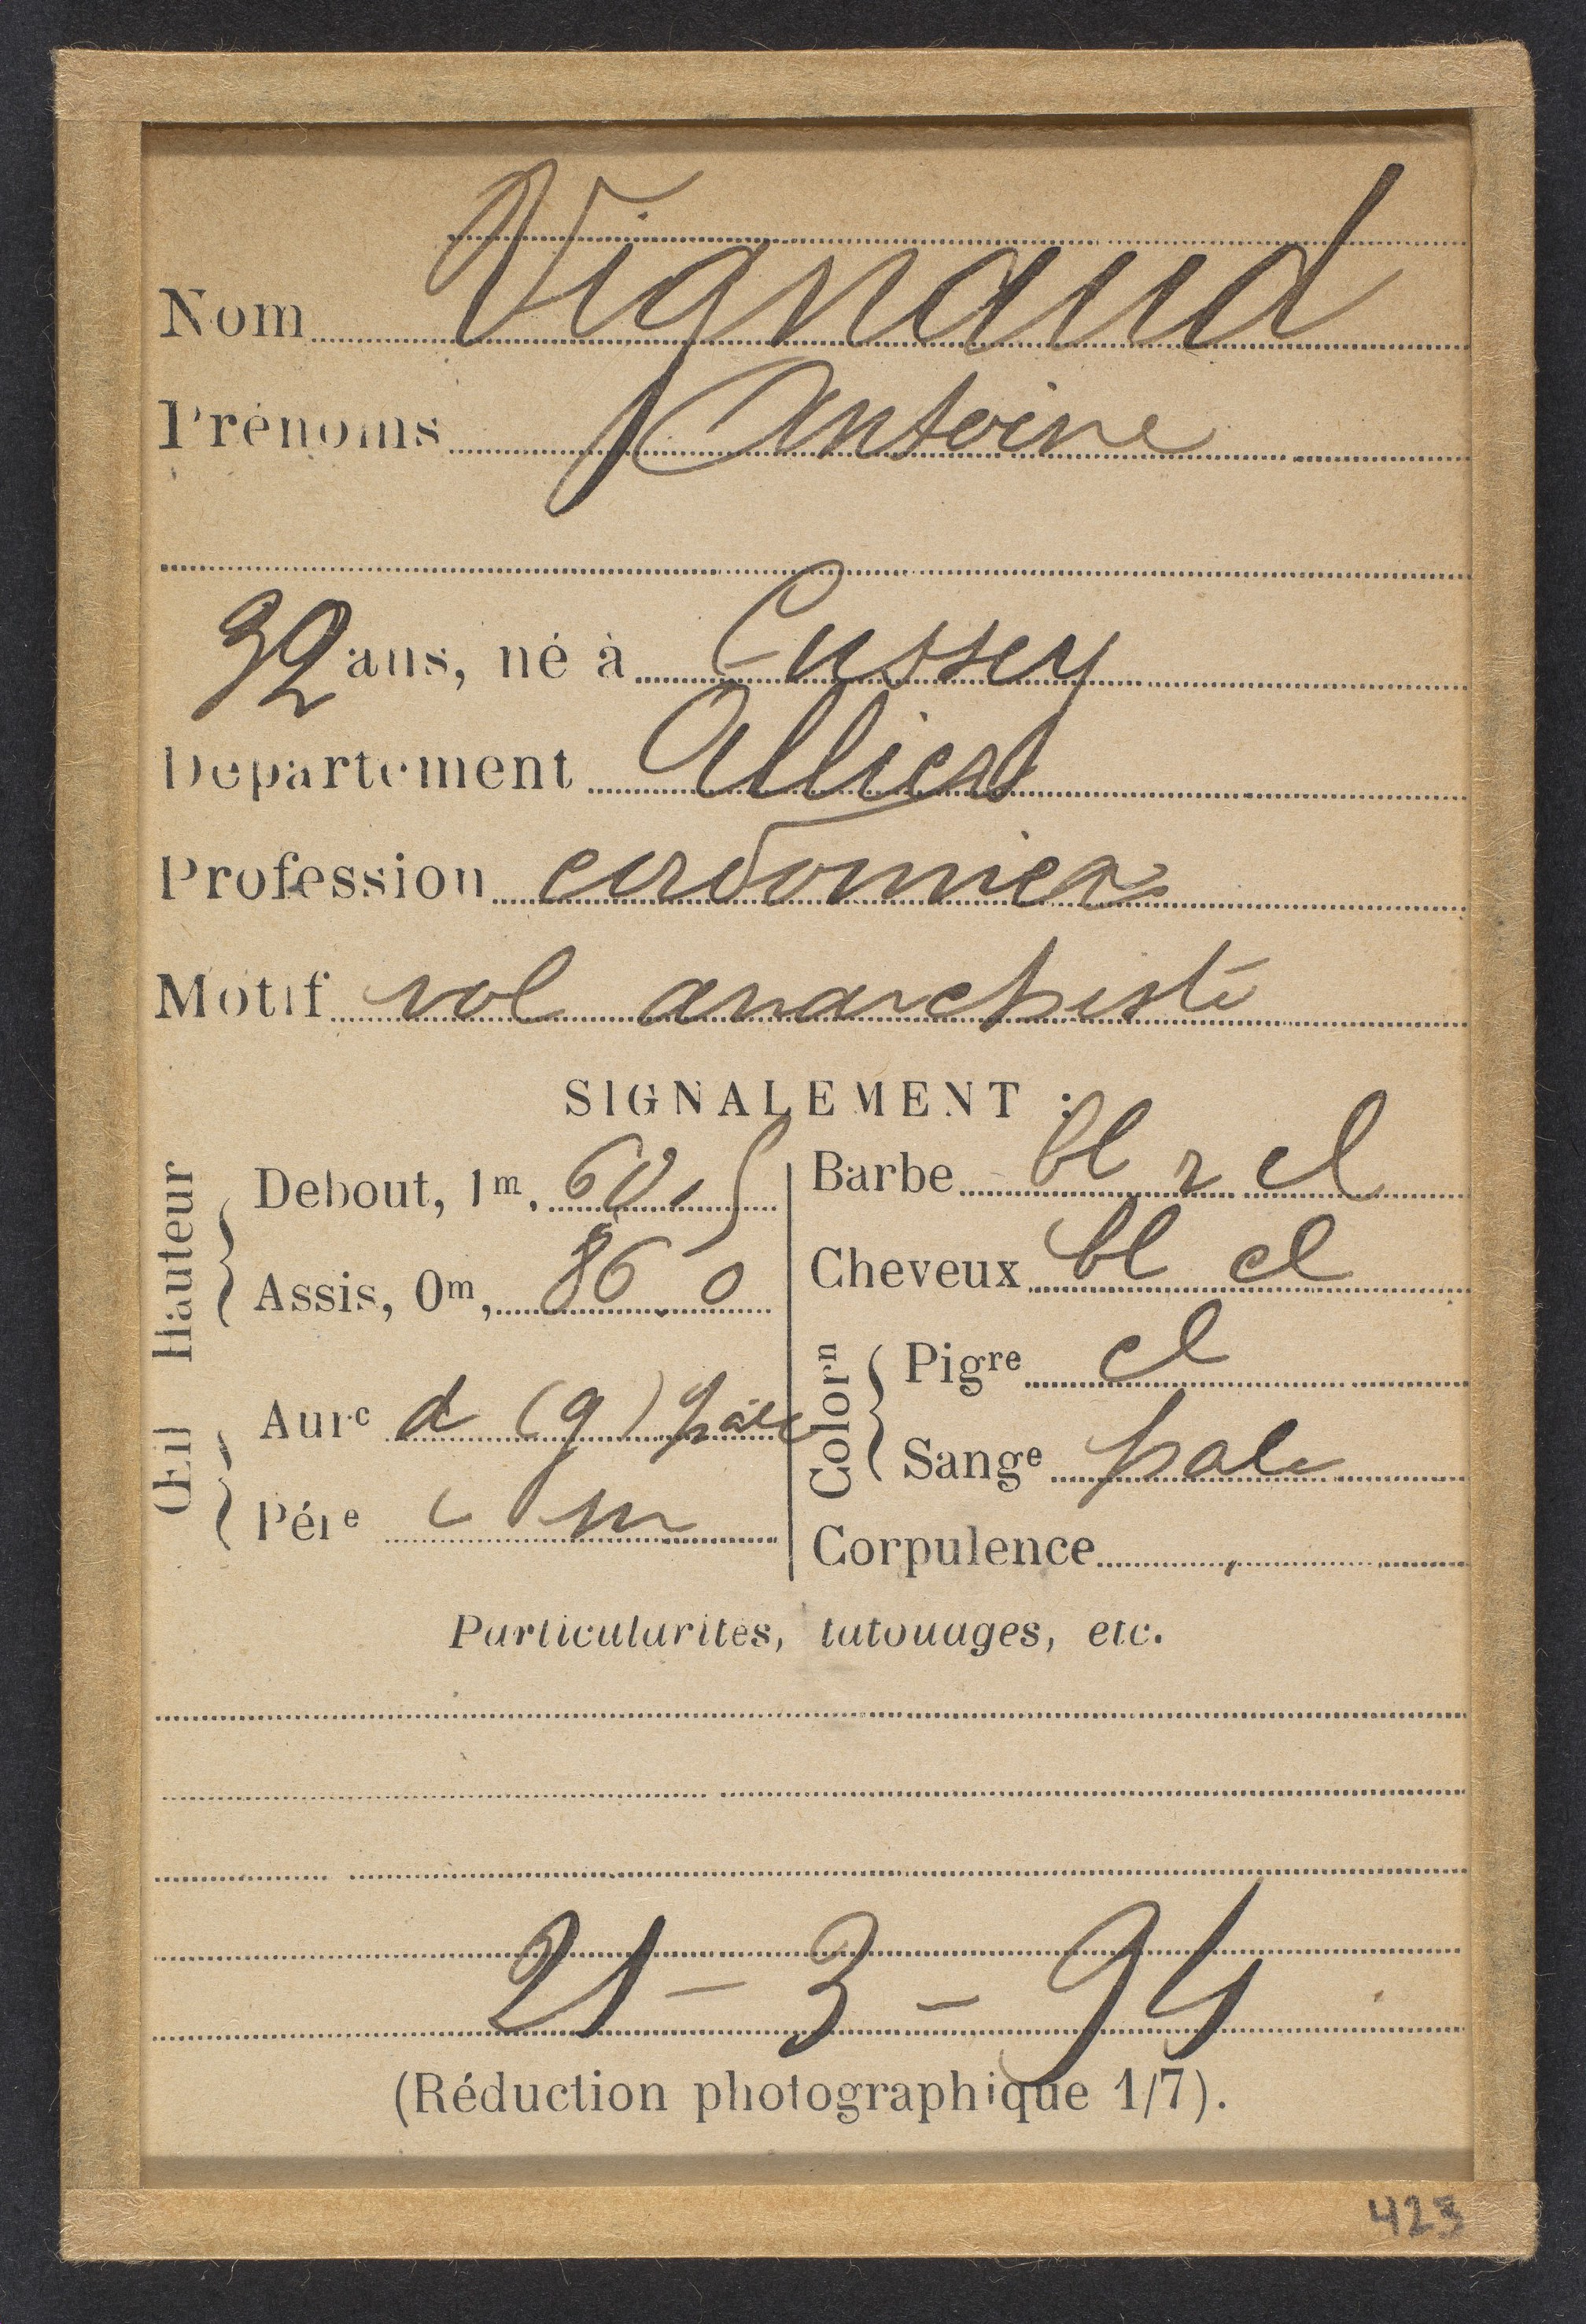 Nom Vignaud
Prénoms Antoine
32 ans, né à Cussey
Département Allier
Profession cordonnier
Motif vol anarchiste
SIGNALEMENT :
Hauteur
Debout, 1m, 60,5
Assis, 0m, 86 0
Œil
Aurc d (g) pâle
Pére c m
Barbe bl r cl
Cheveux bl cl
Colorn
Pigre cl
Sange pale
Corpulence
Particularités, tatouages, etc.
21 - 3 - 94
(Réduction photographique 1/7).
423